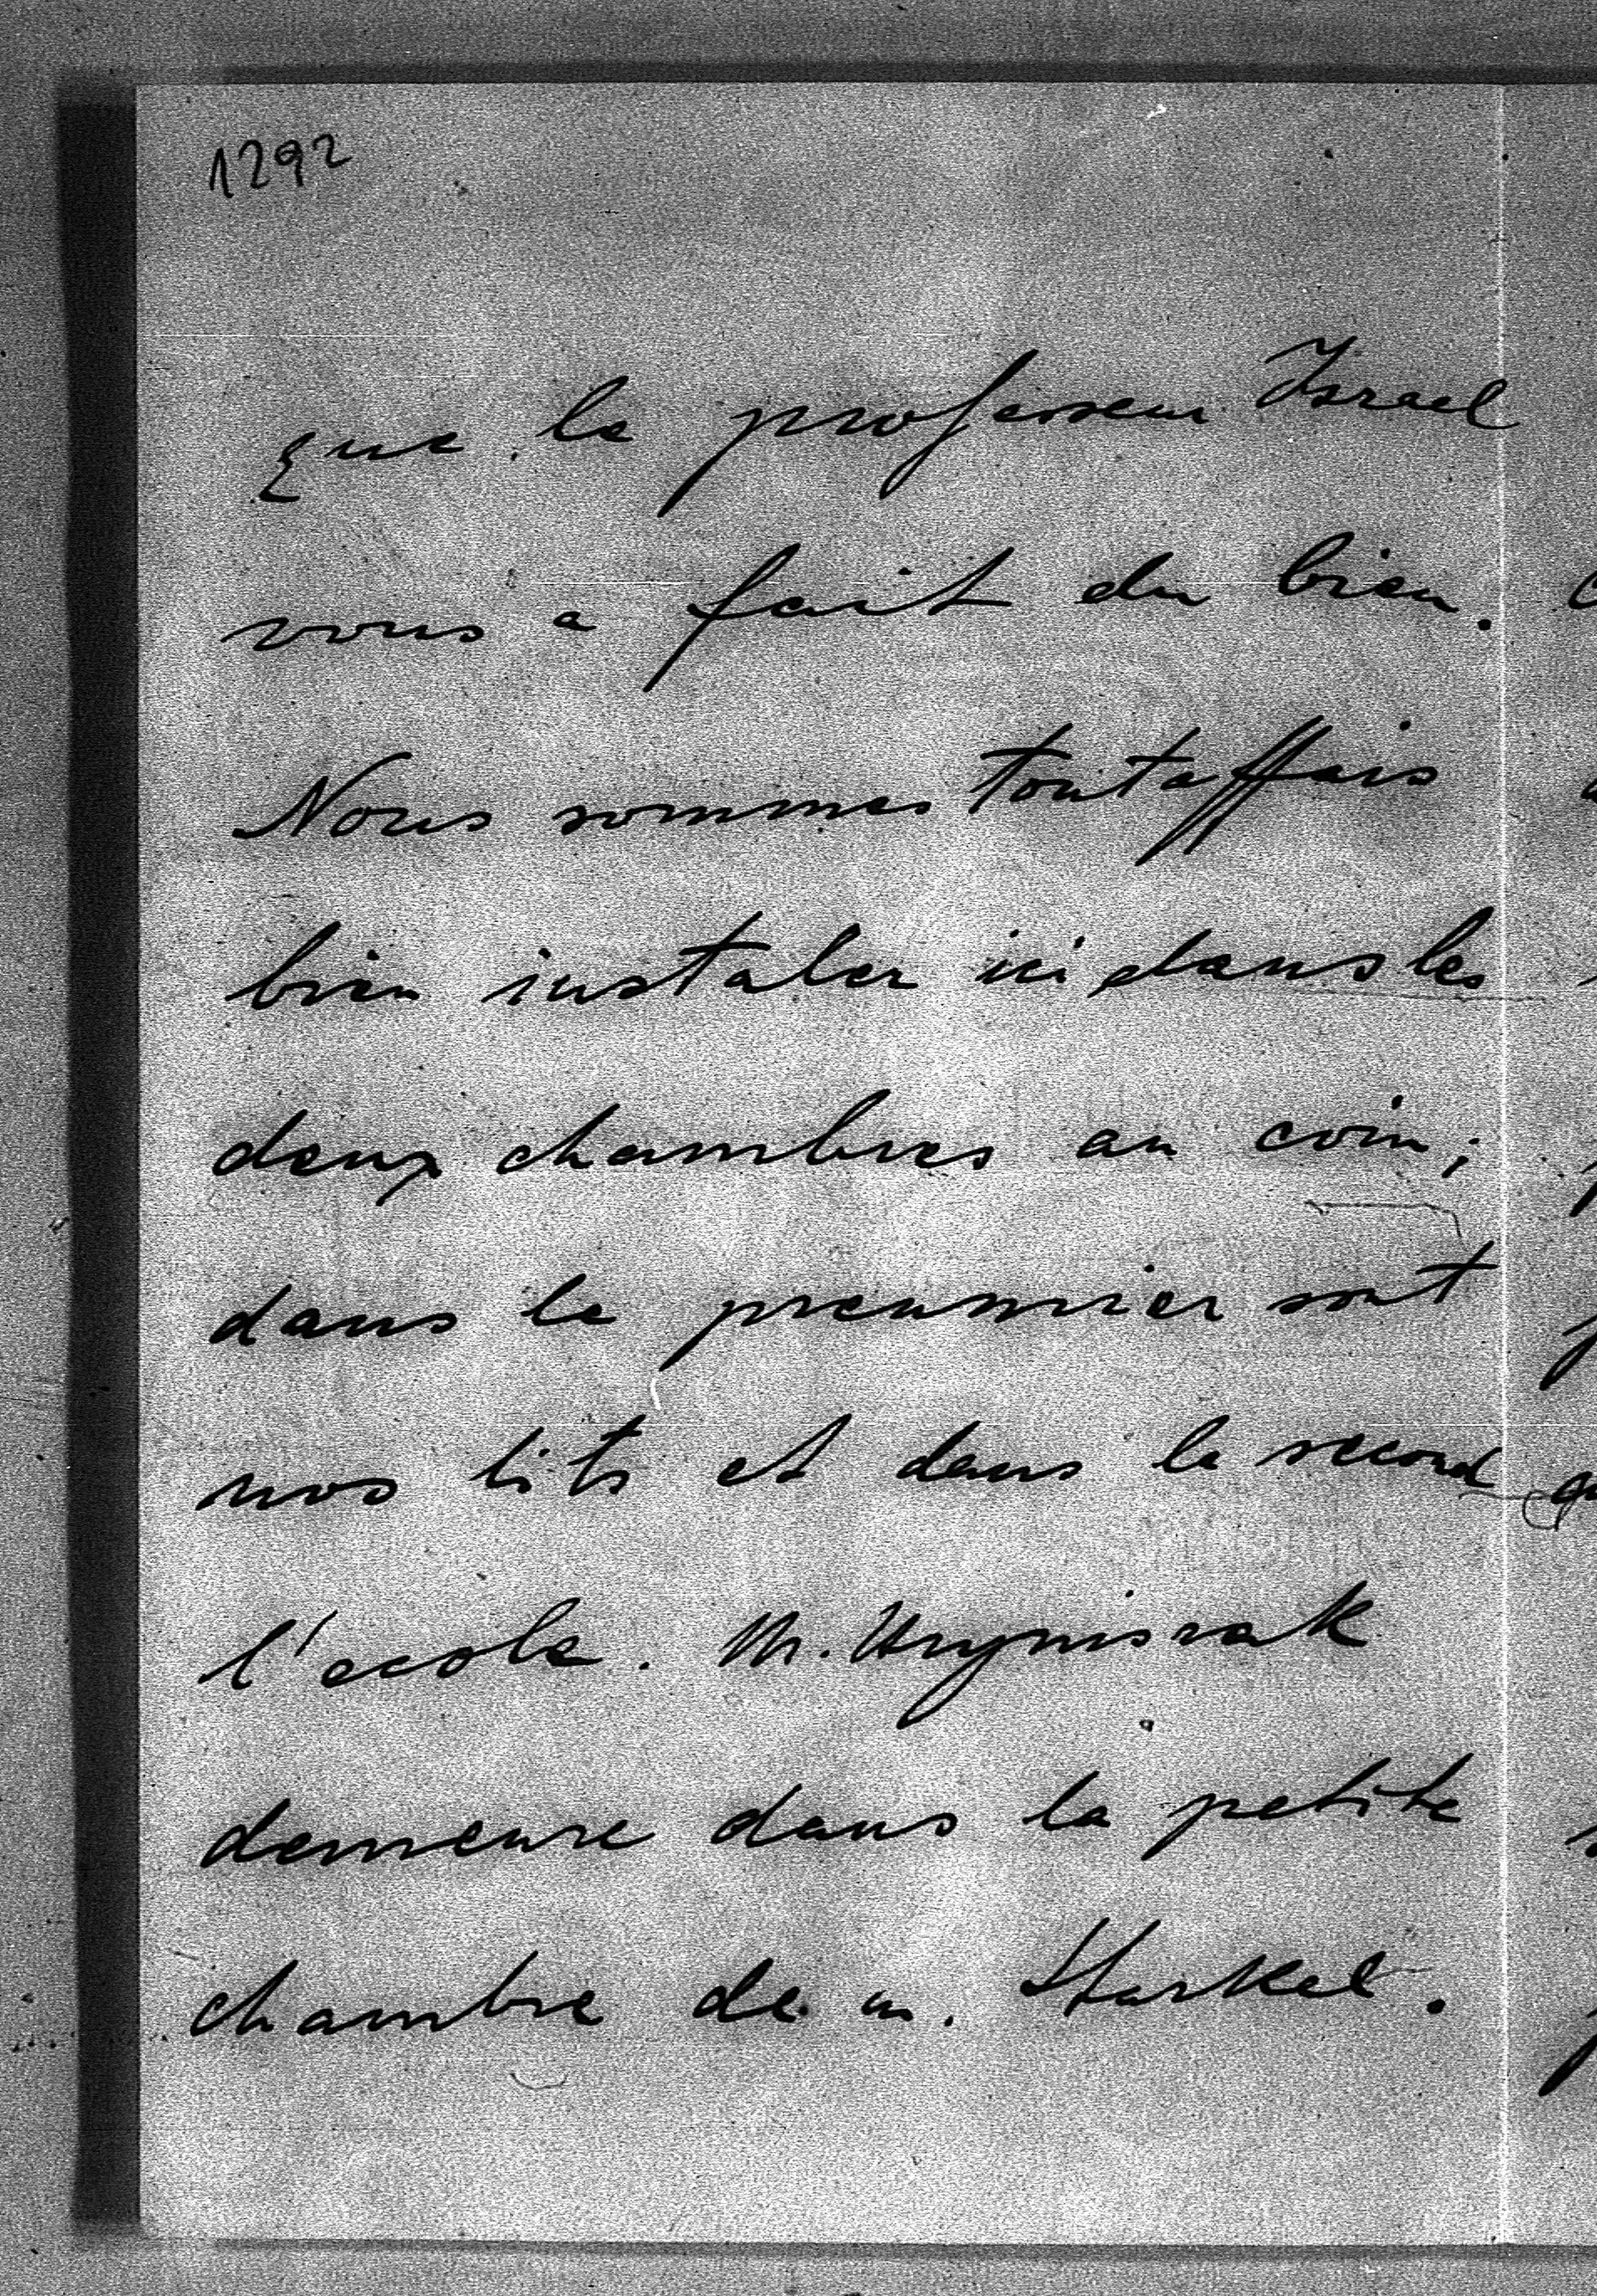 1292
que le professeur Israel
vous a fait du bien.
Nous sommes toutaffais
bien instaler ici dans les
deux chambres au coin;
dans le preumier sont
nos lits et dans le second
l'ecole. M. Hrynisrak
demeure dans la petite
chambre de m. Starkel.